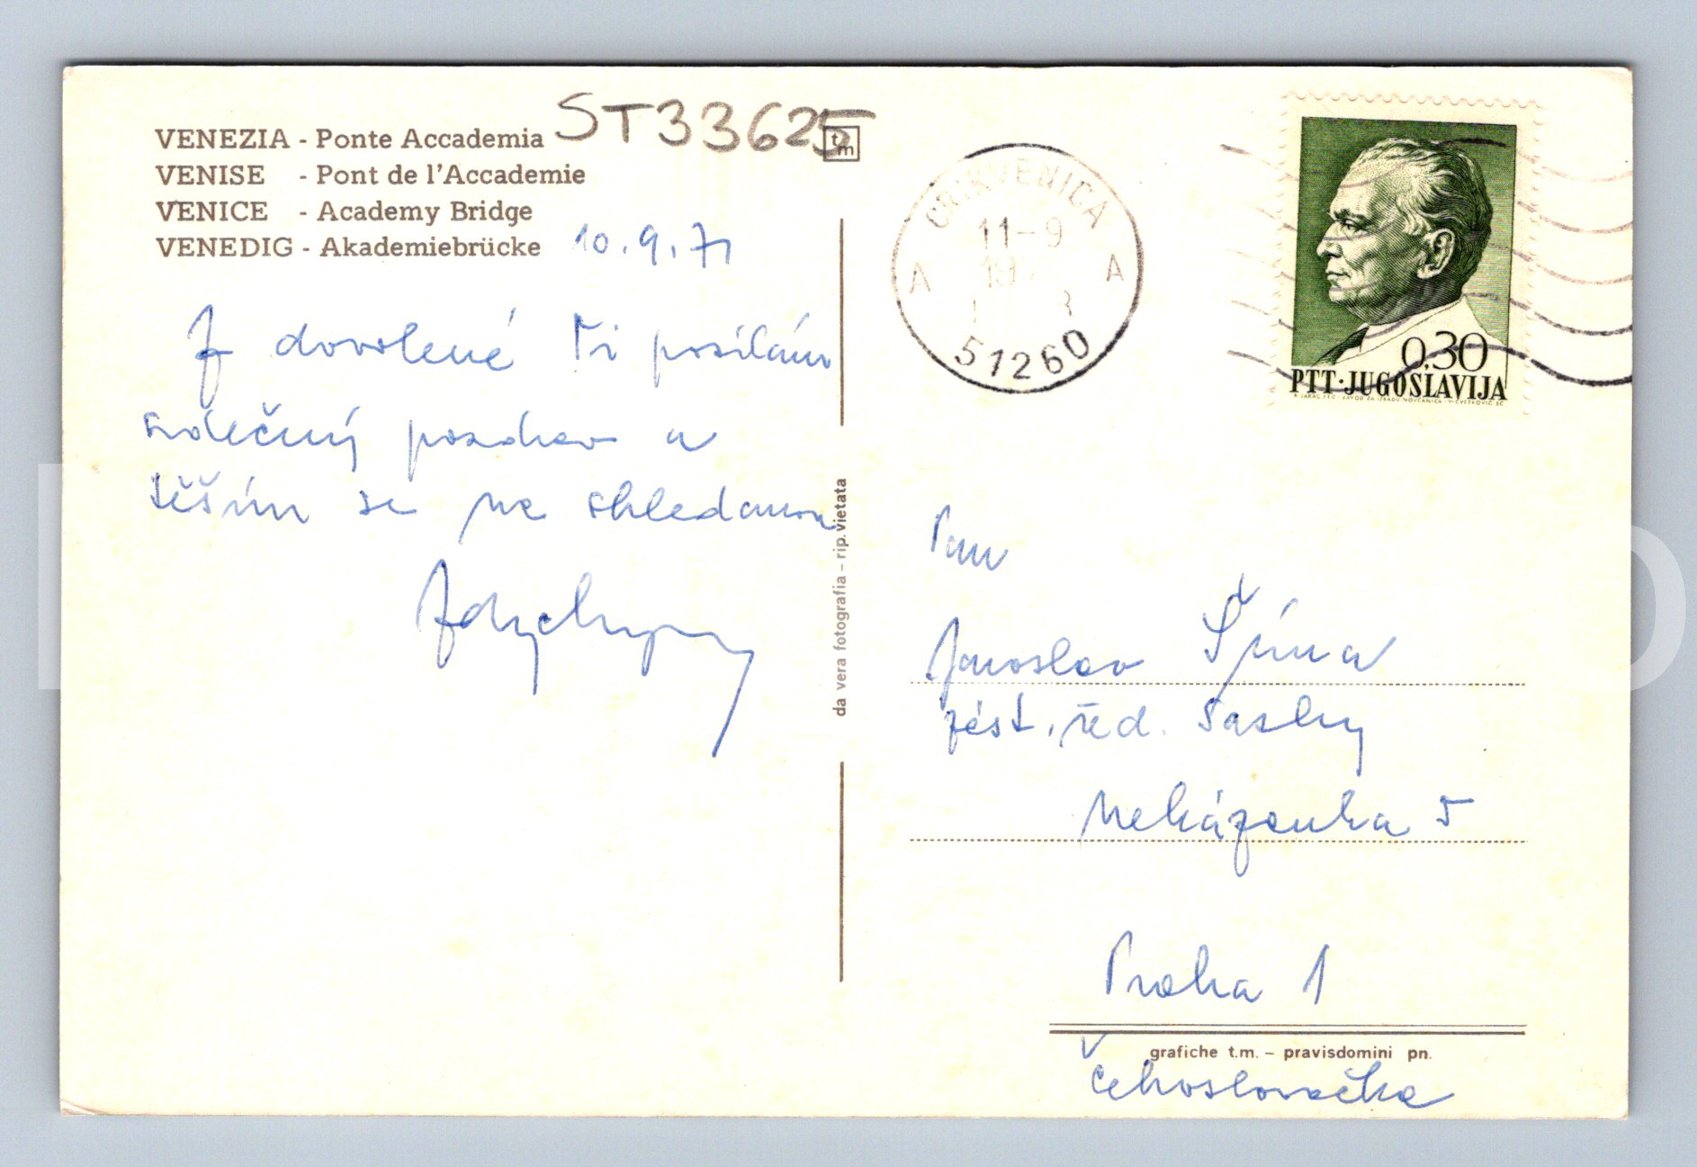 VENEZIA - Ponte Accademia
VENISE - Pont de l'Accademie
VENICE - Academy Bridge
VENEDIG - Akademiebrücke
ST33625
tm
10.9.71
Z dovolené Ti posílám
srdečný pozdrav a
těším se na shledanou
da vera fotografia - rip. vietata
CRIKVENICA
11-9
A A
51260
0,30
PTT·JUGOSLAVIJA
Pan
Jaroslav Šíma
zást. řed. Sazky
Nekázanka 5
Praha 1
grafiche t.m. - pravisdomini pn.
Čehoslovačka